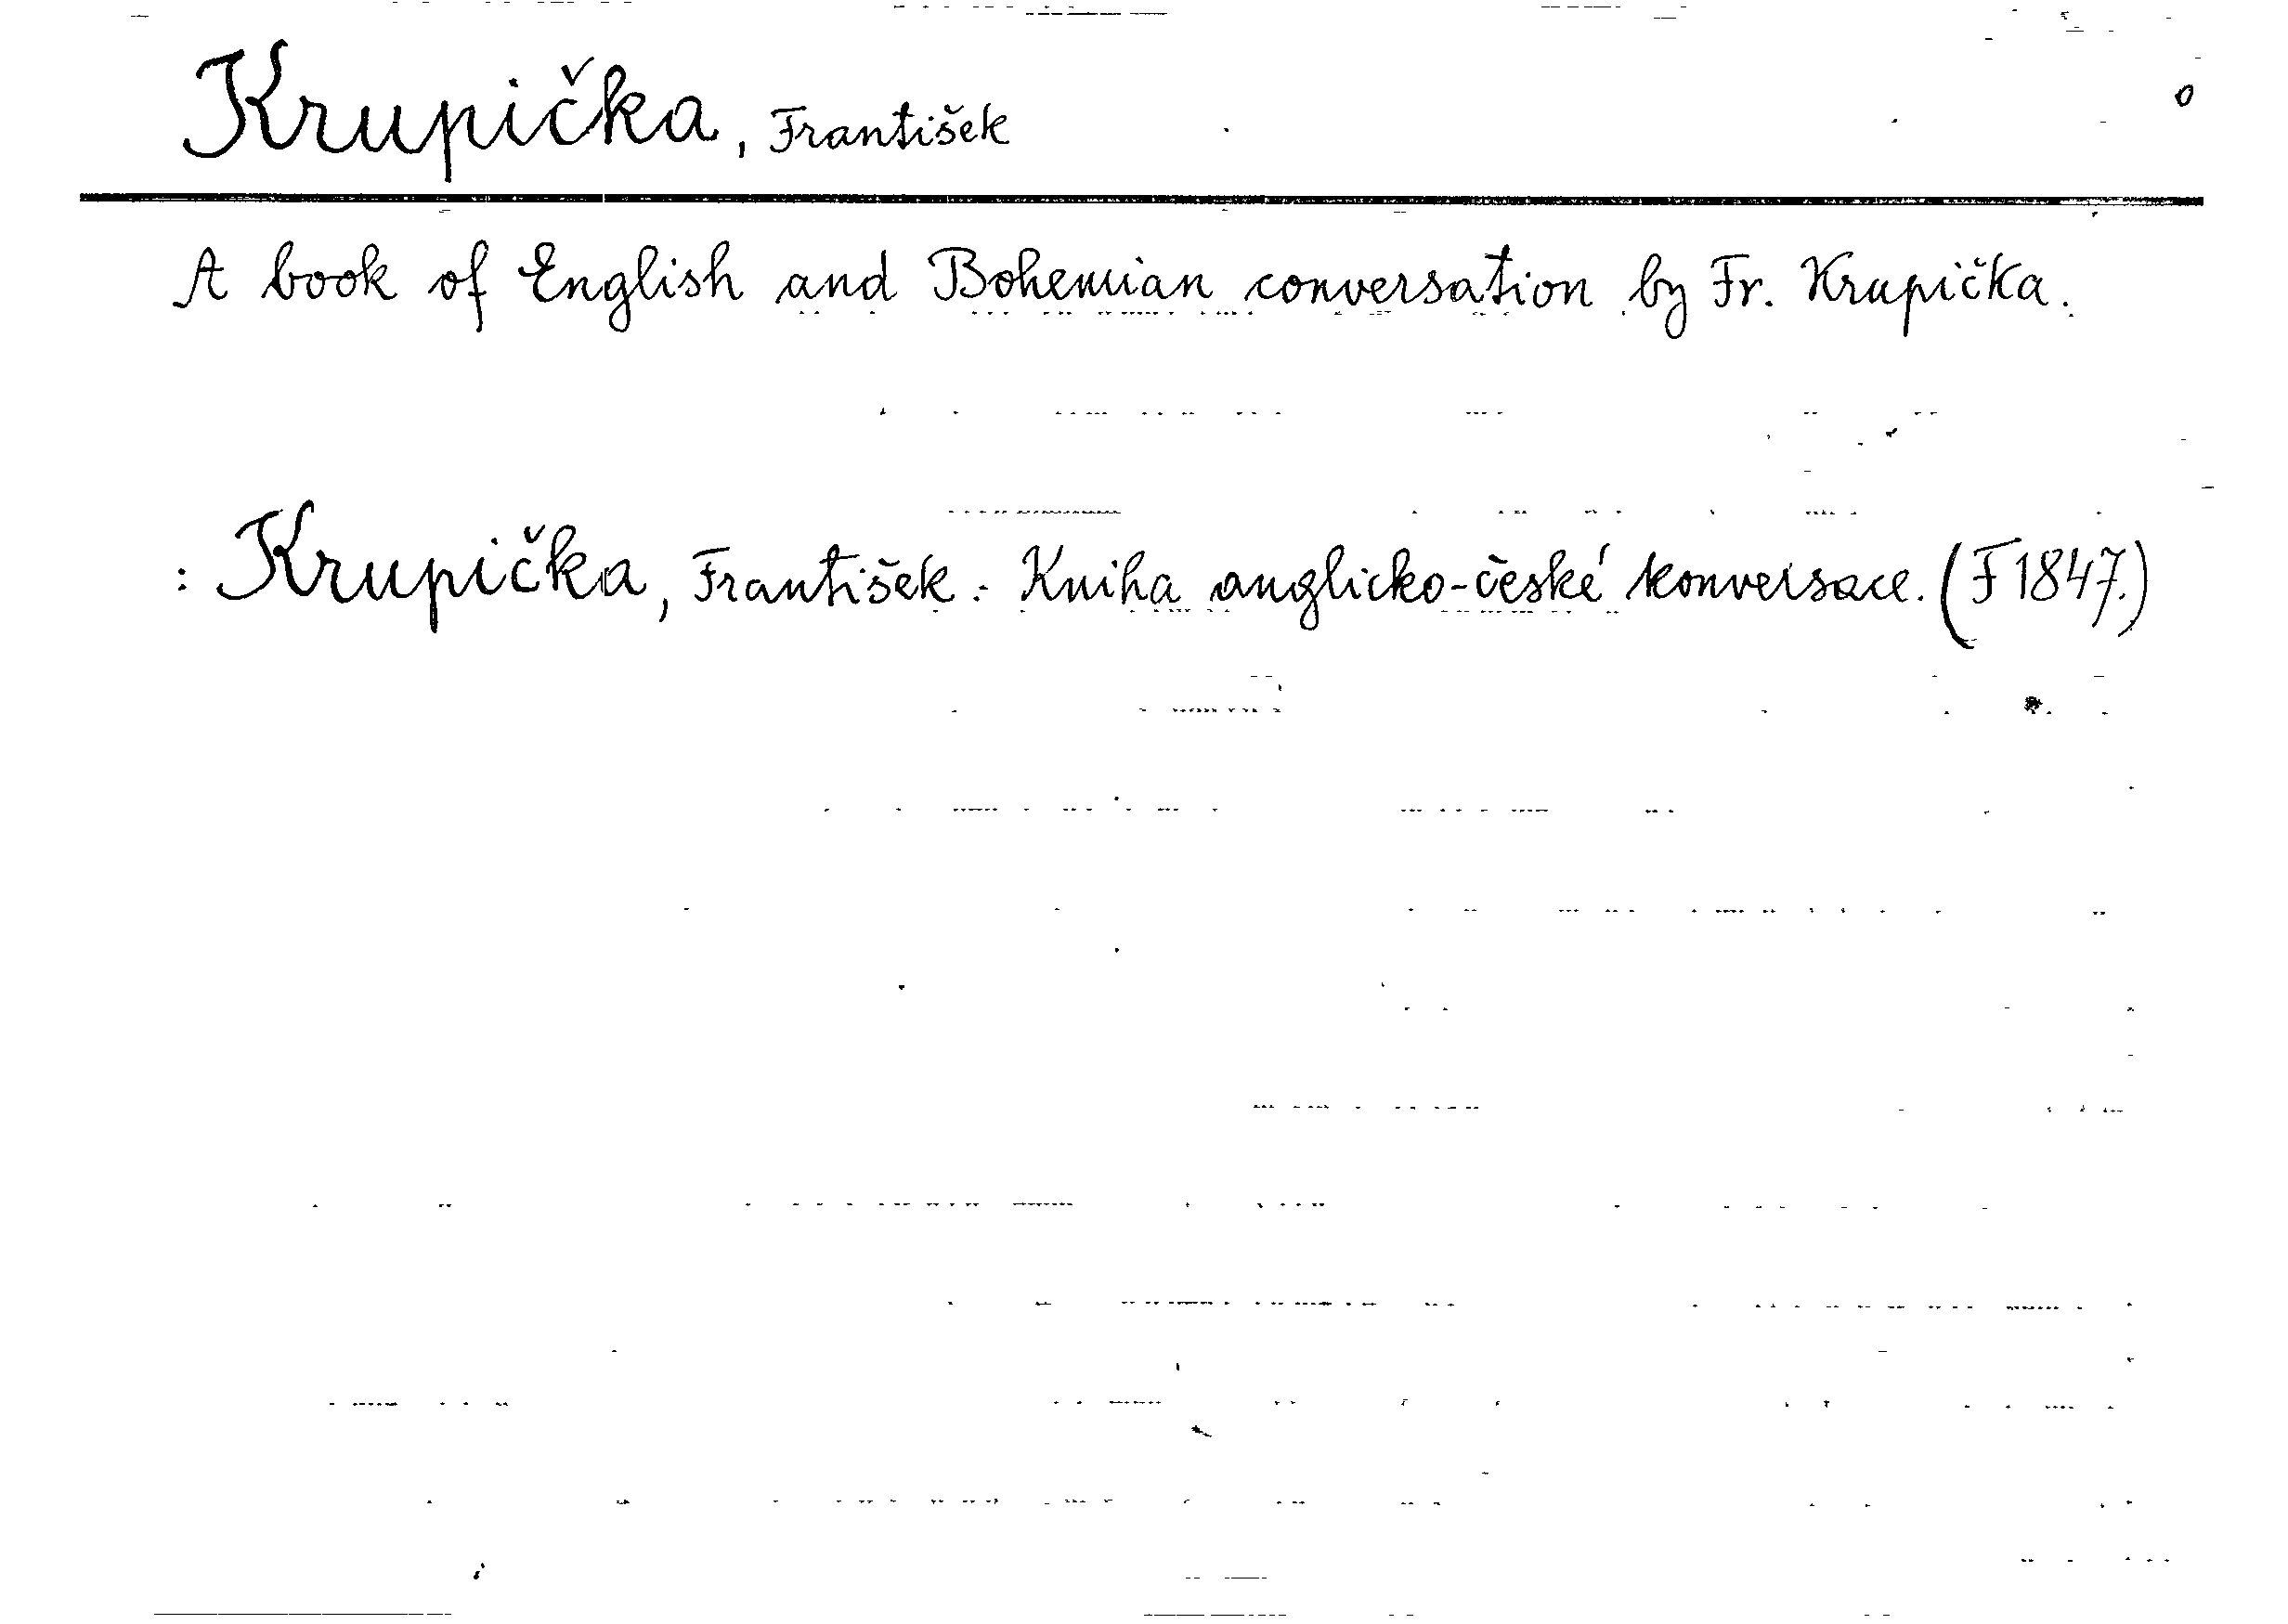 Krupička, František
o
A book of English and Bohemian conversation by Fr. Krupička.
: Krupička, František : Kniha anglicko-české konversace. (F 1847.)